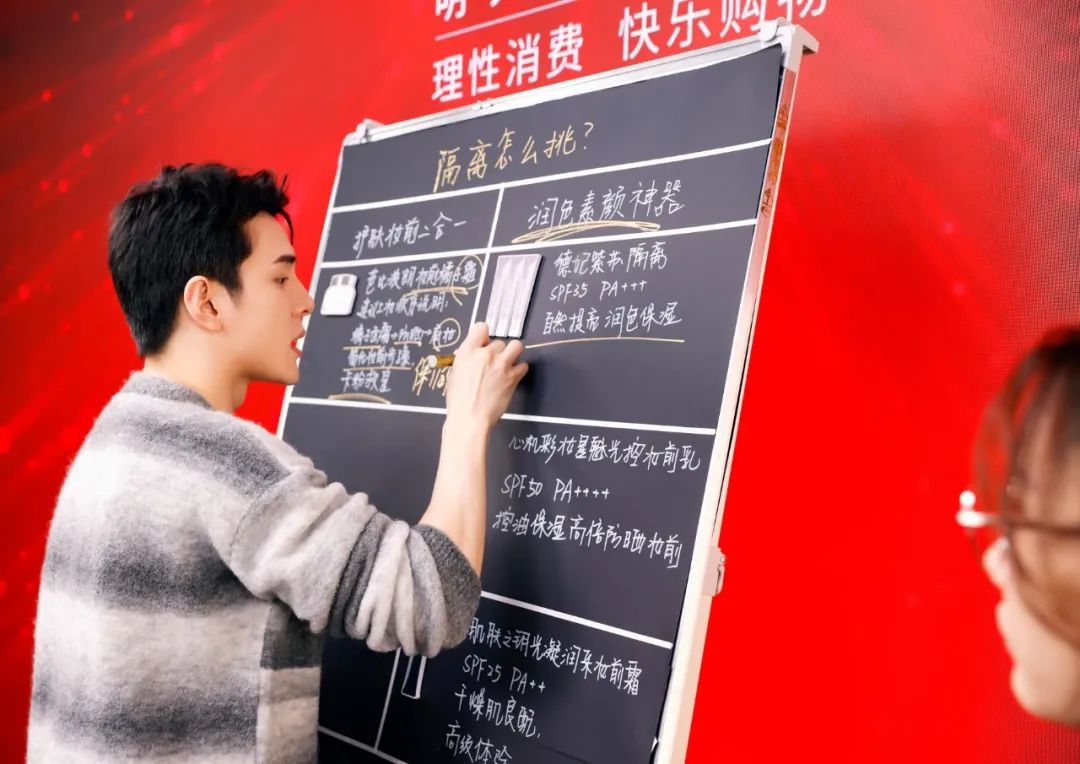 理性消费 快乐购物
隔离怎么挑?
护肤妆前二合一
润色素颜神器
芭比波朗妆前橘子霜
建议上妆顺序说明:
卡粉救星
德妃紫苏隔离
SPF35 PA+++
自然提亮 润色保湿
心机彩妆星魅光控妆前乳
SPF50 PA++++
控油保湿高倍防晒妆前
肌肤之钥光凝润采妆前霜
SPF25 PA++
干燥肌良配,
高级体验